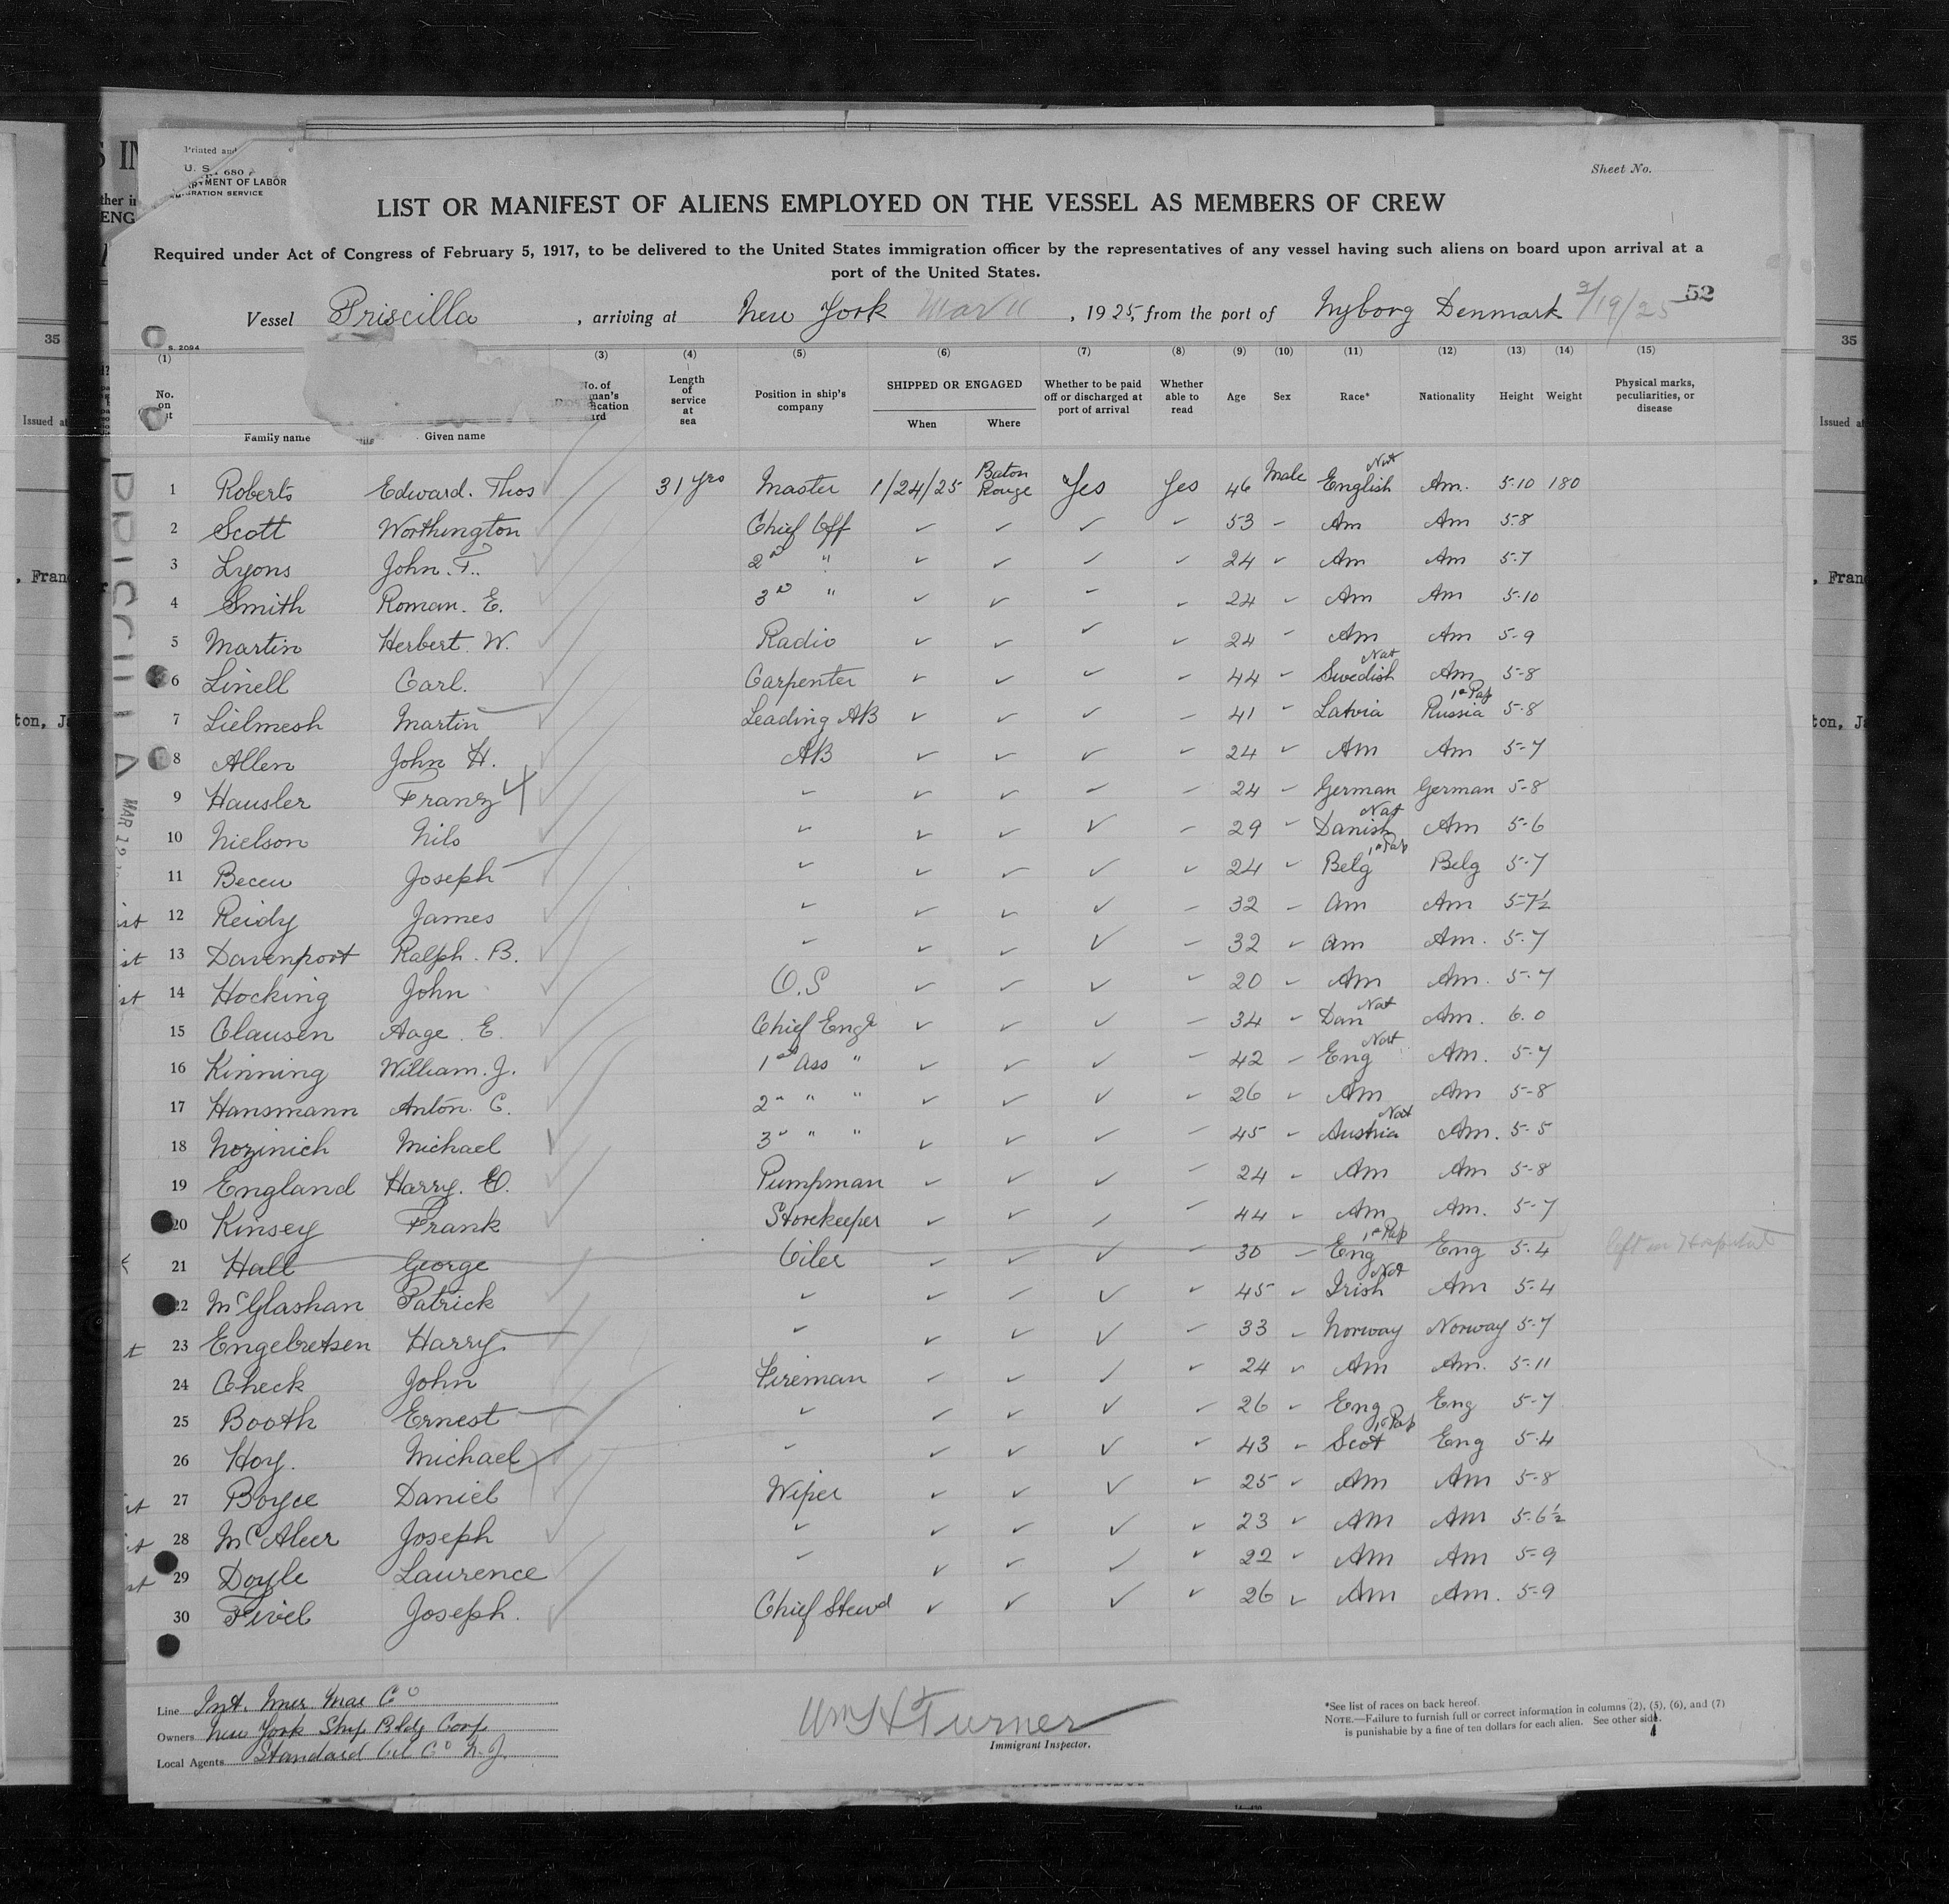 Printed and
U. S.
680
DEPARTMENT OF LABOR
IMMIGRATION SERVICE
Sheet No.
LIST OR MANIFEST OF ALIENS EMPLOYED ON THE VESSEL AS MEMBERS OF CREW
Required under Act of Congress of February 5, 1917, to be delivered to the United States immigration officer by the representatives of any vessel having such aliens on board upon arrival at a
port of the United States.
52
Vessel Priscilla, arriving at New York Mar 11, 1925, from the port of Nyborg Denmark 2/19/25
S. 2094
(1) (3) (4) (5) (6) (7) (8) (9) (10) (11) (12) (13) (14) (15)
No. on Family name Given name No. of Length of service at sea Position in ship's company SHIPPED OR ENGAGED When Where Whether to be paid off or discharged at port of arrival Whether able to read Age Sex Race* Nationality Height Weight Physical marks, peculiarities, or disease
PRISCILLA
MAR 12
1 Roberts Edward. Thos 31 yrs Master 1/24/25 Baton Rouge Yes Yes 46 Male English Nat Am. 5-10 180
2 Scott Worthington Chief Off ✓ ✓ ✓ ✓ 53 ✓ Am Am 5-8
3 Lyons John. F. 2nd " ✓ ✓ ✓ ✓ 24 ✓ Am Am 5-7
4 Smith Roman. E. 3rd " ✓ ✓ ✓ ✓ 24 ✓ Am Am 5-10
5 Martin Herbert. W. Radio ✓ ✓ ✓ ✓ 24 ✓ Am Am 5-9
6 Linell Carl. Carpenter ✓ ✓ ✓ ✓ 44 ✓ Swedish Nat Am 5-8
7 Lielmesh Martin Leading AB ✓ ✓ ✓ ✓ 41 ✓ Latvia Russia 1st Pap 5-8
8 Allen John H. AB ✓ ✓ ✓ ✓ 24 ✓ Am Am 5-7
9 Hausler Franz ✓ ✓ ✓ ✓ ✓ 24 ✓ German German 5-8
10 Nielson Nils ✓ ✓ ✓ ✓ ✓ 29 ✓ Danish Nat Am 5-6
11 Joseph ✓ ✓ ✓ ✓ ✓ 24 ✓ Belg 1st Pap Belg 5-7
12 Reidy James ✓ ✓ ✓ ✓ ✓ 32 ✓ Am Am 5-7½
13 Davenport Ralph. B. ✓ ✓ ✓ ✓ ✓ 32 ✓ Am Am. 5-7
14 Hocking John O.S ✓ ✓ ✓ ✓ 20 ✓ Am Am. 5-7
15 Clausen Aage. E. Chief Engr ✓ ✓ ✓ ✓ 34 ✓ Dan Nat Am. 6.0
16 Kinning William. J. 1st Ass " ✓ ✓ ✓ ✓ 42 ✓ Eng Nat Am. 5-7
17 Hansmann Anton. C. 2nd " " ✓ ✓ ✓ ✓ 26 ✓ Am Am 5-8
18 Nozinich Michael 3rd " " ✓ ✓ ✓ ✓ 45 ✓ Austria Nat Am. 5-5
19 England Harry. E. Pumpman ✓ ✓ ✓ ✓ 24 ✓ Am Am 5-8
20 Kinsey Frank Storekeeper ✓ ✓ ✓ ✓ 44 ✓ Am Am. 5-7
21 Hall George Oiler ✓ ✓ ✓ ✓ 30 ✓ Eng 1st Pap Eng 5.4 left in Hospital
22 McGlashan Patrick ✓ ✓ ✓ ✓ ✓ 45 ✓ Irish Nat Am 5-4
23 Engebretsen Harry. ✓ ✓ ✓ ✓ ✓ 33 ✓ Norway Norway 5-7
24 Check John Fireman ✓ ✓ ✓ ✓ 24 ✓ Am Am. 5-11
25 Booth Ernest ✓ ✓ ✓ ✓ ✓ 26 ✓ Eng Eng 5-7
26 Hoy. Michael ✓ ✓ ✓ ✓ ✓ 43 ✓ Scot 1st Pap Eng 5-4
27 Boyce Daniel Wiper ✓ ✓ ✓ ✓ 25 ✓ Am Am 5-8
28 McAleer Joseph ✓ ✓ ✓ ✓ ✓ 23 ✓ Am Am 5-6½
29 Doyle Laurence ✓ ✓ ✓ ✓ ✓ 22 ✓ Am Am 5-9
30 Fivel Joseph. Chief Stewd ✓ ✓ ✓ ✓ 26 ✓ Am Am. 5-9
Line Int. Mer Mar Co
Owners New York Ship Bldg Corp
Local Agents Standard Oil Co N.J.
Wm H Turner
Immigrant Inspector.
*See list of races on back hereof.
NOTE.—Failure to furnish full or correct information in columns (2), (5), (6), and (7)
is punishable by a fine of ten dollars for each alien. See other side.
35
Issued at
, Fran
ton, Ja